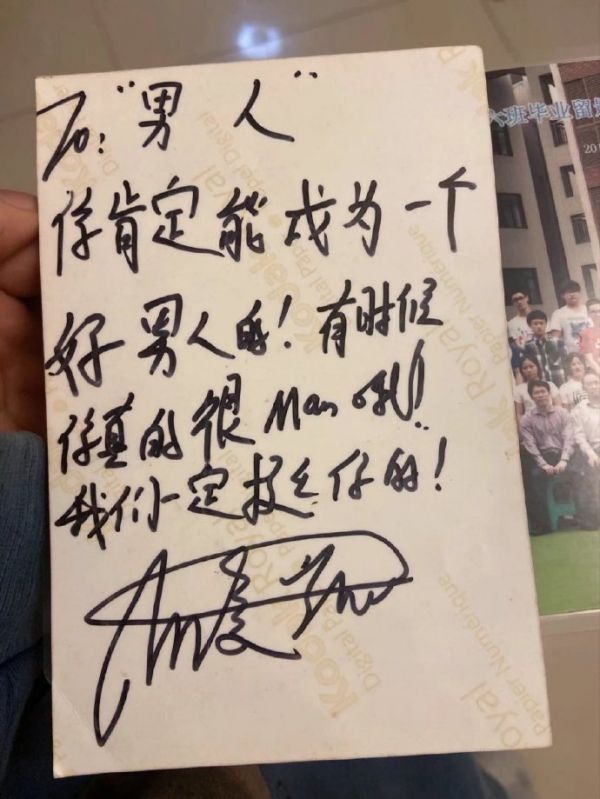 To:"男人"
你肯定能成为一个
好男人的!有时候
你真的很Man哦!
我们一定挺仔的!
Kodak Royal
Digital Paper
Papel Digital
Papier Numérique
六班毕业留
201